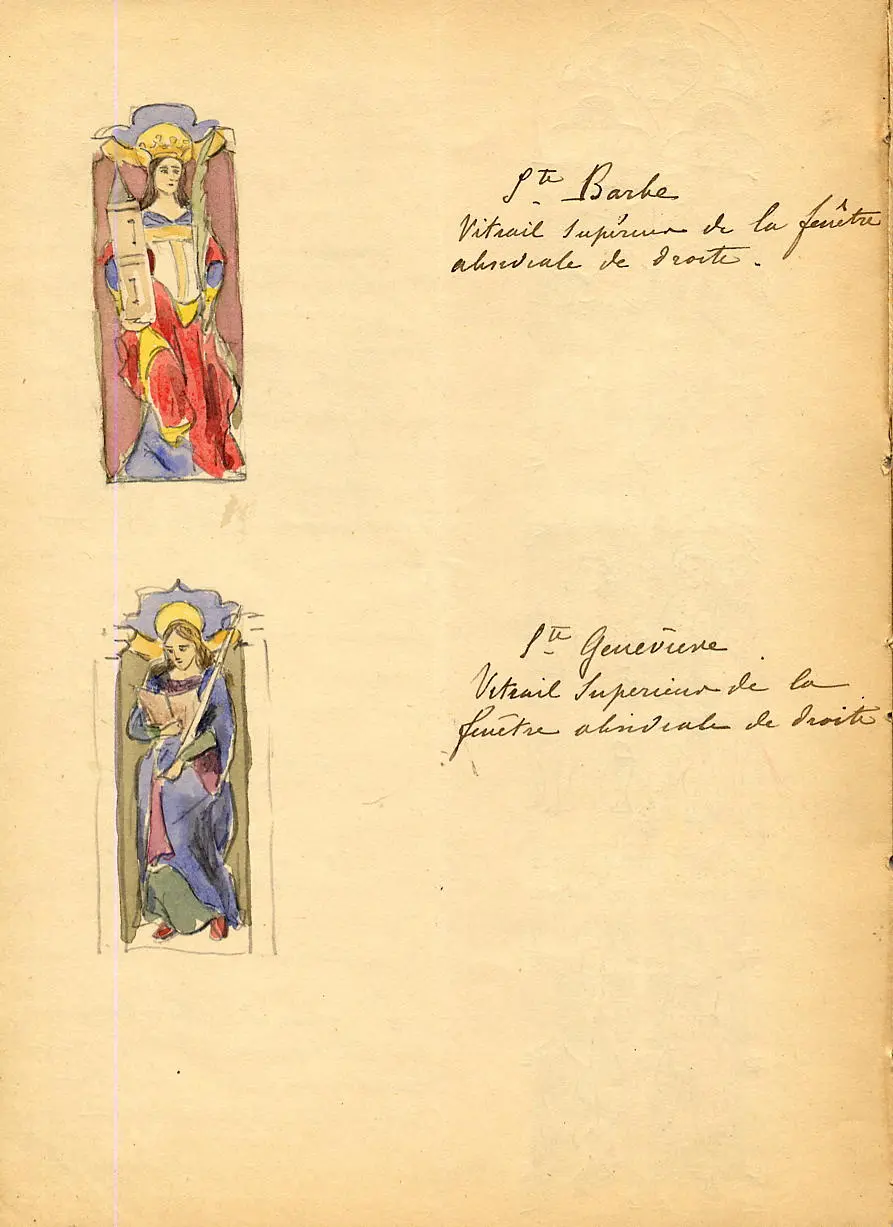 Ste Barbe
Vitrail Supérieur de la fenêtre
absidiale de droite.
Ste Geneviève
Vitrail Superieur de la
fenêtre absidiale de droite.